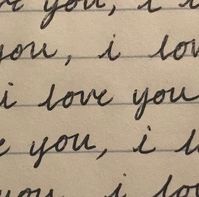 you, i i
you, i lov
i love you
e you, i l
you, i lov